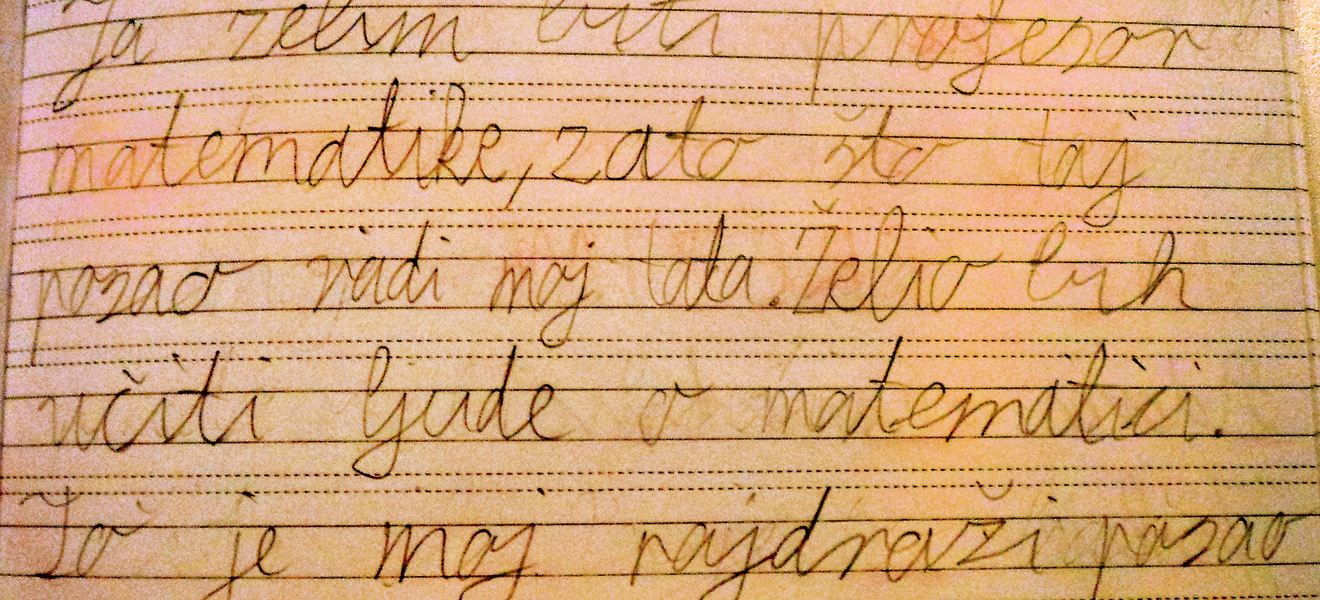 Ja želim biti profesor
matematike, zato što taj
posao radi moj tata. Želio bih
učiti ljude o matematici.
To je moj najdraži posao